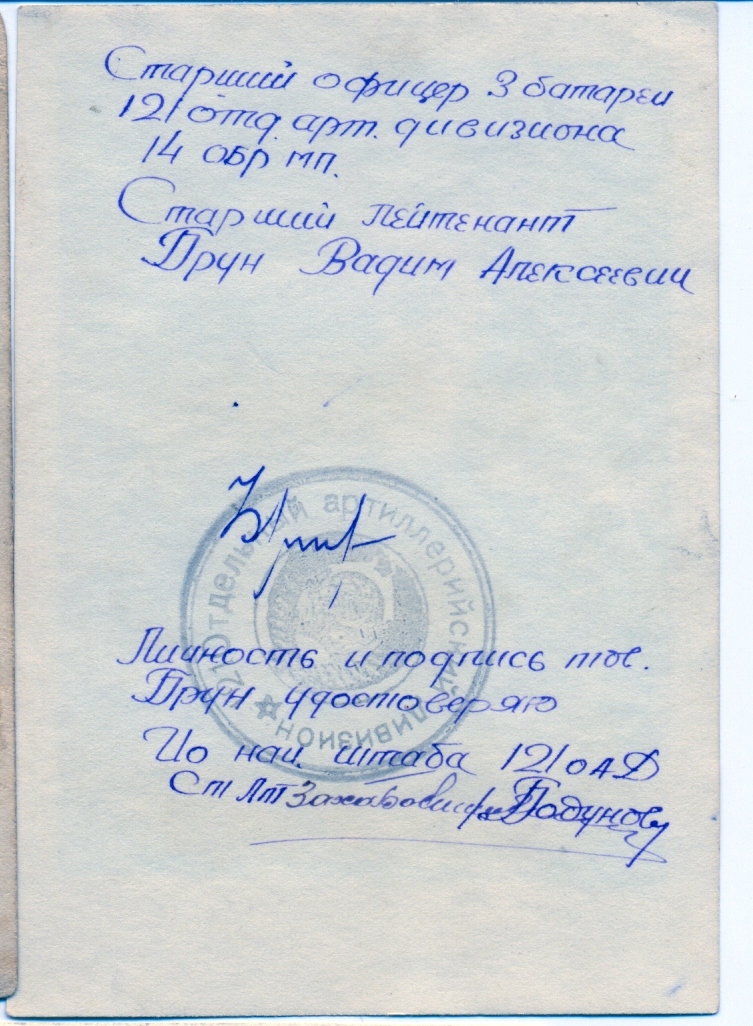 Старший офицер 3 батареи
121 отд. арт. дивизиона
14 обр мп.
Старший лейтенант
Прун Вадим Алексеевич
121 Отдельный артиллерийский дивизион
Личность и подпись тов.
Прун удостоверяю
Ио нач. штаба 121 оАД
Ст Лт